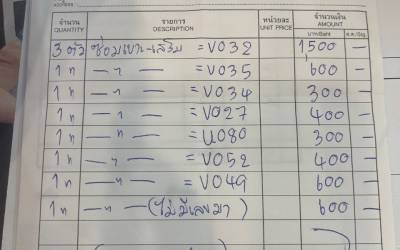 จำนวน รายการ หน่วยละ จำนวนเงิน
QUANTITY DESCRIPTION UNIT PRICE AMOUNT
บาท/Baht ส.ต./Stg.
3 ตัว ซ่อมเบาะ-เสริม = V032 1500 —
1 ท — ๚ — = V035 600 —
1 ท — ๚ — = V034 300 —
1 ท — ๚ — = V027 400 —
1 ท — ๚ — = U080 300 —
1 ท — ๚ — = V052 400 —
1 ท — ๚ — = V049 600 —
1 ท — ๚ — (ไม่มีเลขมา) 600 —